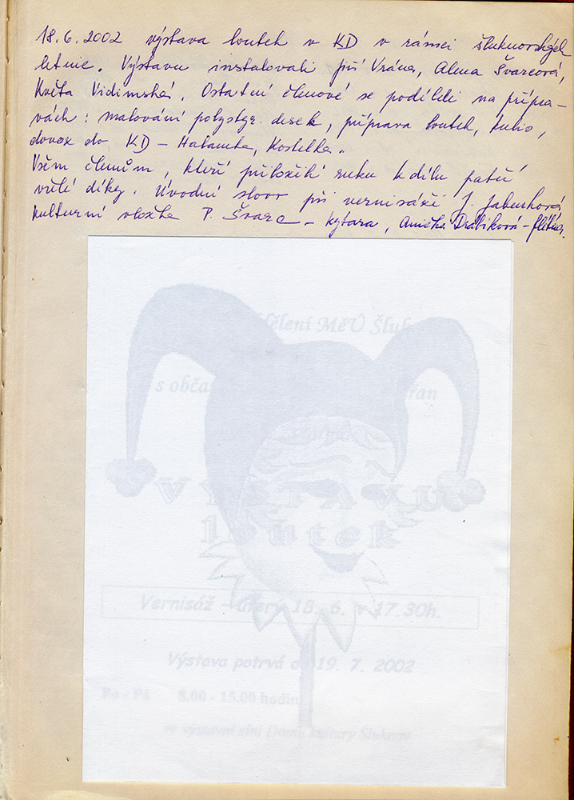 18.6.2002 výstava loutek v KD v rámci šluknovských
letnic. Výstavu instalovali př. Vrána, Alena Švarcová,
Květa Vidimská. Ostatní členové se podíleli na přípra-
vách: malování polystyr. desek, příprava loutek,
dovoz do KD – Kostelka.
Všem členům, kteří přiložili ruku k dílu patří
vřelé díky. Úvodní slovo při vernisáži J.
kulturní vložka P. Švarc – kytara, Anička Drábiková – flétna.
dělení MěÚ Šluk
s obča
VÝSTAVU
loutek
Vernisáž - úterý 18. 6. v 17.30h.
Výstava potrvá do 19. 7. 2002
Po - Pá 8.00 - 15.00 hodin
ve výstavní síni Domu kultury Šluknov